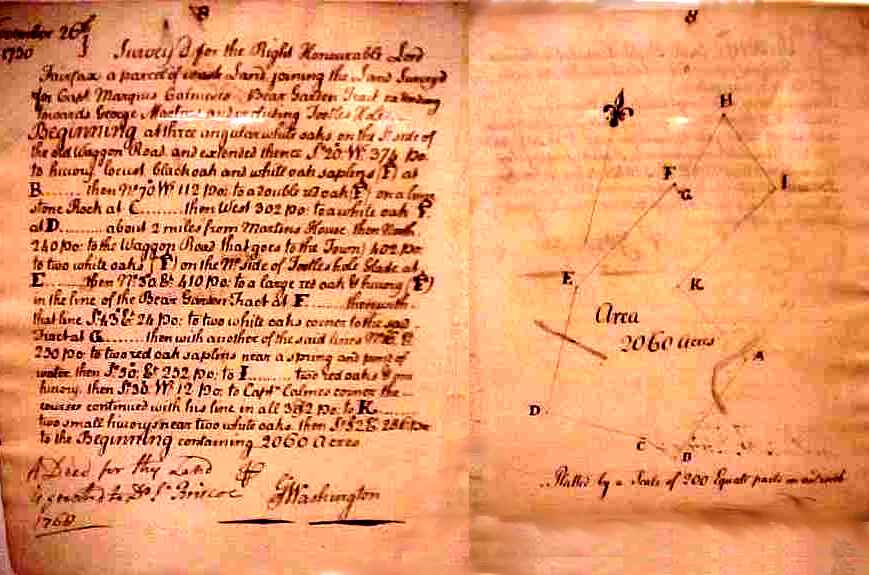 26th
1750
Survey'd for the Right Honourable Lord
Fairfax a parcel of waste Land joining the Land Survey'd
for Capt Marquis Calmeses Bear Garden Tract extending
towards George Martins and including Tootles Hole
Beginning at three angular white oaks on the So side of
the old Waggon Road and extended thence So 20 Wt 374 po:
to hickory locust black oak and white oak saplins (F) at
B ........ then No 70 Wt 112 po: to a double red oak (F) on a
stone Rock at C ........ then West 302 po: to a white oak F
at D ........ about 2 miles from Martins House then North
240 po: to the Waggon Road that goes to the Town) 402 po:
to two white oaks (F) on the No side of Tootles hole Glade at
E ........ then No 410 po: to a large red oak & hickory (F)
in the line of the Bear Garden Tract at F ........ thence with
that line So 45 Et 24 po: to two white oaks corner to the said
Tract at G ........ then with another of the said lines
250 po: to two red oak saplins near a spring and
water then So Et 232 po: to I ........ two red oaks &
hickory, then So Wt 12 po: to Capt Calmes corner the
courses continued with his line in all po: to K ........
two small hickorys near two white oaks, then So 52 Et po:
to the Beginning containing 2060 Acres
A Deed for this Land
granted to Dr Briscoe
1768
GWashington
8
H
F
G
I
E
K
Area
2060 Acres
A
D
C
B
Platted by a Scale of 200 Equal parts